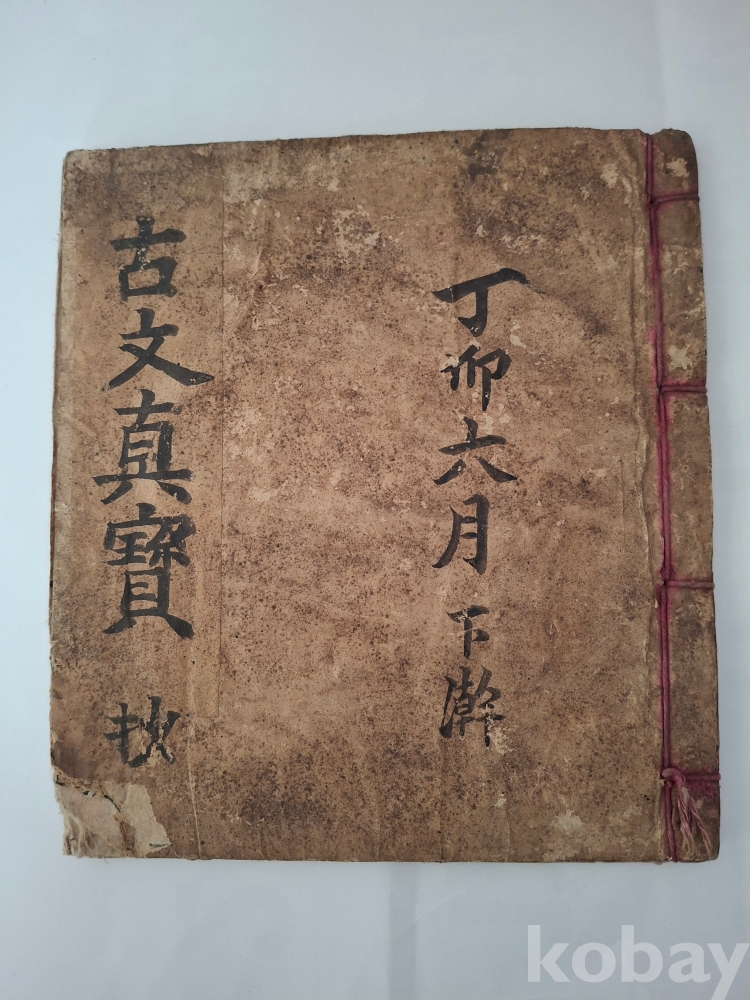 丁卯六月 下澣
古文真寶 抄
kobay